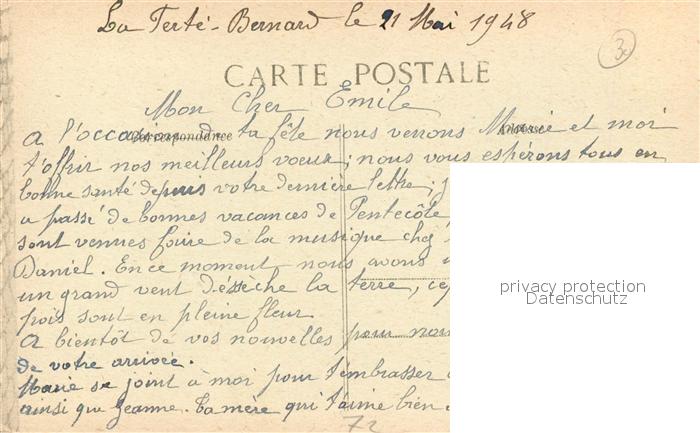 La Ferté-Bernard le 21 Mai 1948
3e
CARTE POSTALE
Mon Cher Emile
Correspondance Adresse
A l'occasion de ta fête nous venons Marie et moi
t'offrir nos meilleurs voeux, nous vous espérons tous en
bonne santé depuis votre dernière lettre,
a passé de bonnes vacances de Pentecôte
sont venues faire de la musique chez
Daniel. En ce moment nous avons
un grand vent déssèche la terre, ce
pois sont en pleine fleur
A bientôt de vos nouvelles pour nou
de votre arrivée.
Marie se joint à moi pour t'embrasser
ainsi que Jeanne. Ta mère qui t'aime bien
72
privacy protection
Datenschutz